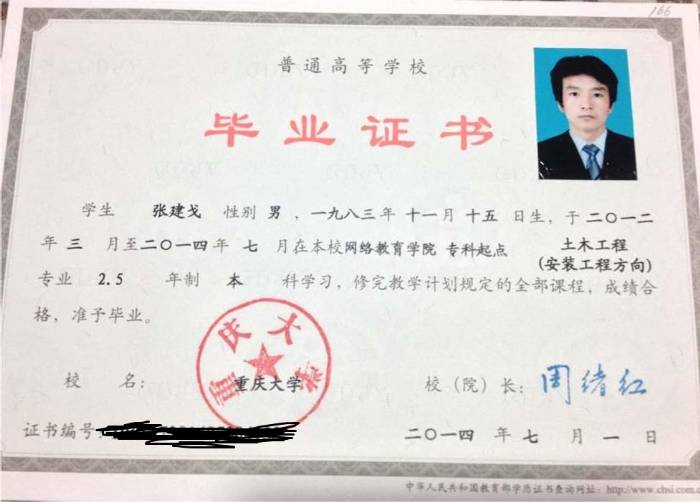 166
普通高等学校
毕业证书
学生 张建戈 性别 男 ,一九八三年 十一月 十五 日生,于二〇一二
年 三 月至二〇一四年 七 月在本校网络教育学院 专科起点 土木工程
(安装工程方向)
专业 2.5 年制 本 科学习,修完教学计划规定的全部课程,成绩合
格,准予毕业。
重庆大学
校 名: 重庆大学 校(院)长: 周绪红
证书编号:
二〇一四 年 七 月 一 日
中华人民共和国教育部学历证书查询网址:http://www.chsi.com.c